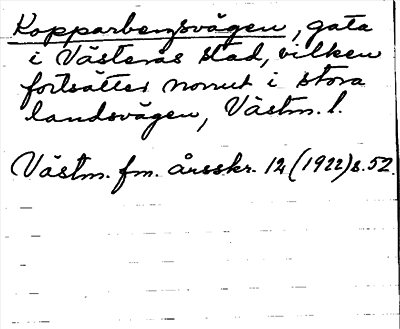 Kopparbergsvägen, gata
i Västerås stad, vilken
fortsätter norrut i stora
landsvägen, Västm. l.
Västm. fm. årsskr. 12 (1922) s. 52.